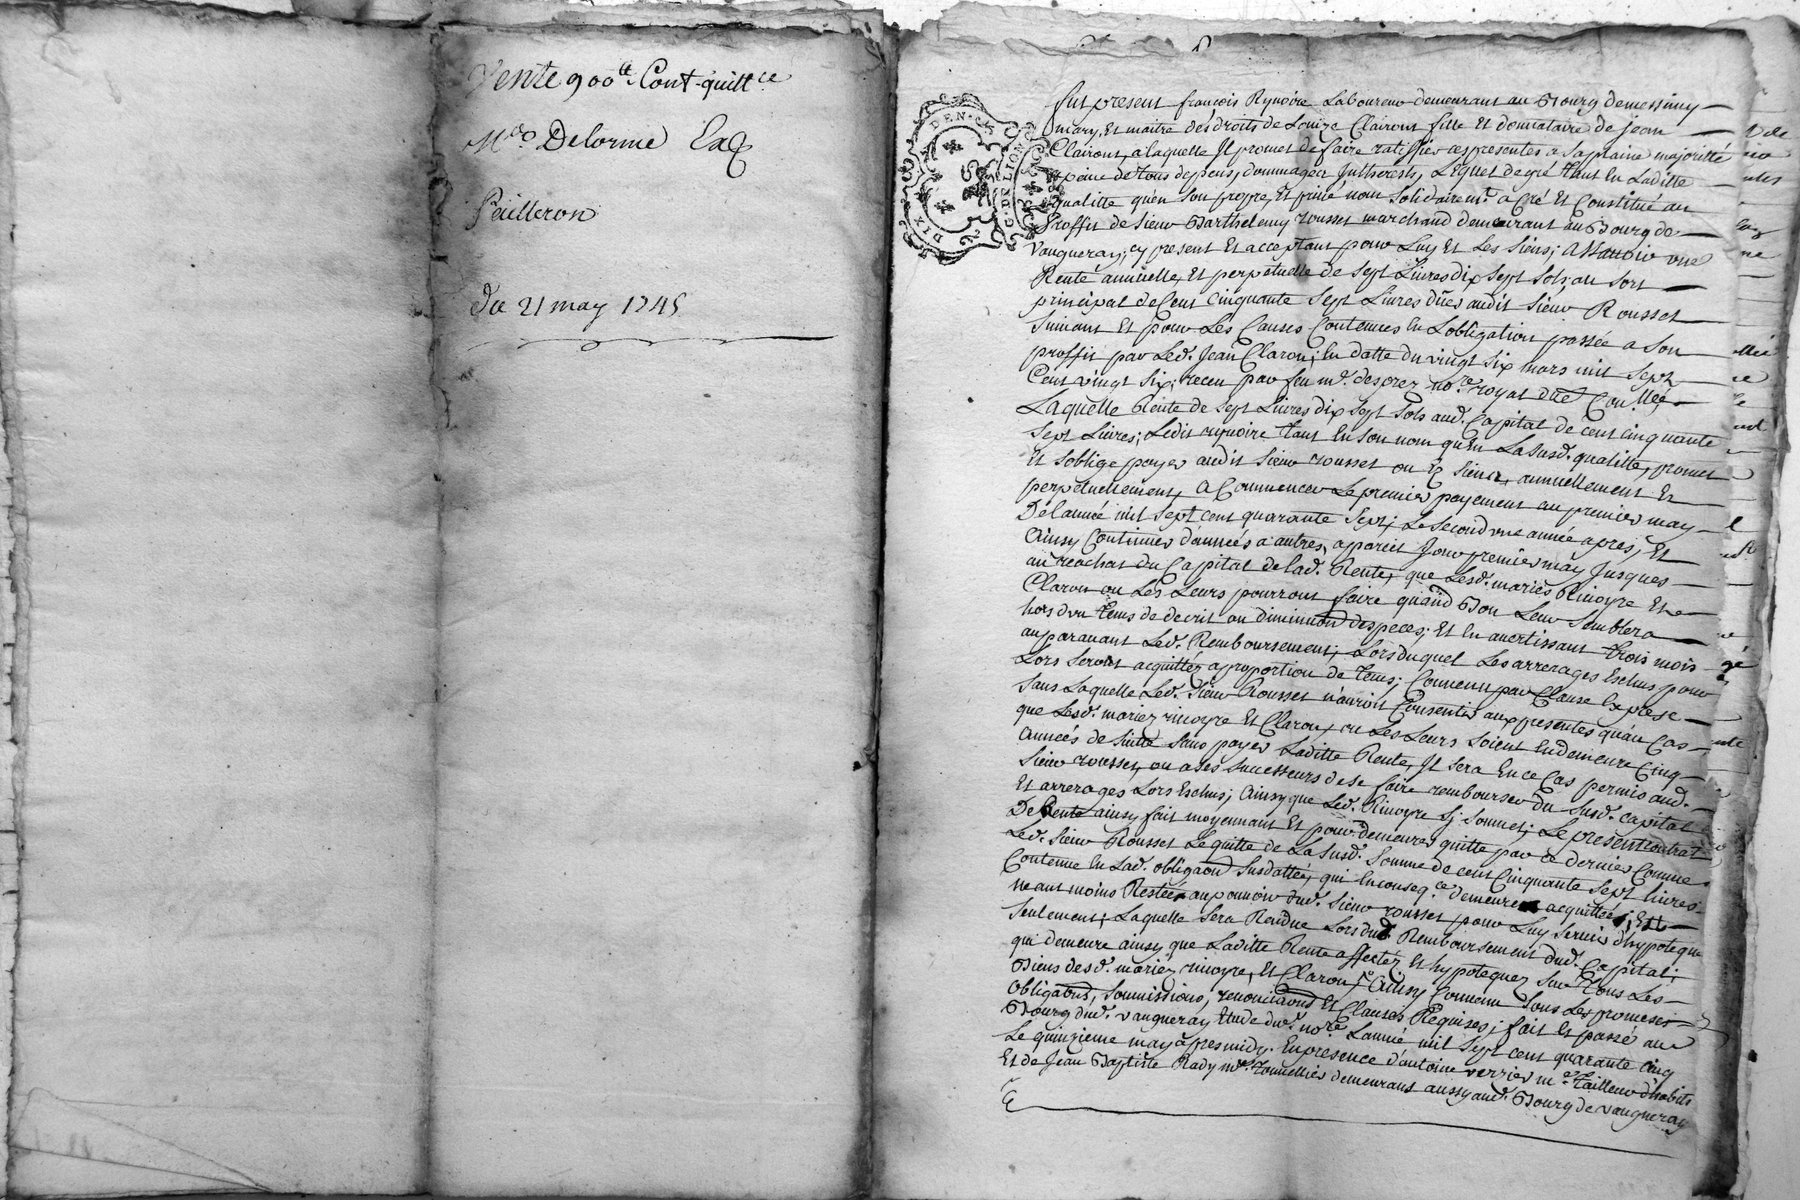 Vente 900tt Cont. quittce
Mrs Delorme Ex
Peilleron
Du 21 may 1745
DIX DEN.
G. DE LION
fut present francois Rynoire Laboureur demeurant au Bourg demessimy
mary, Et maitre des droits de Louize Clairons fille Et donnataire de jean
Clairons, a laquelle Jl promet de faire ratiffier ces presentes a sa plaine majoritté
a peine de tous depens, dommages Jntherests, Lequel de gré tant En Laditte
qualitte qu'en son propre, Et privé nom solidairemt. a Créé Et Constitué au
Proffit de sieur Barthelemy rousset marchand demeurant au Bourg de
vaugneray, cy present Et acceptant pour Luy Et Les siens; assavoir une
Rente annuelle, Et perpetuelle de sept Livres dix sept sols; au sort
principal de Cent Cinquante sept Livres dües audit sieur Rousset
suivant Et pour Les Causes Contenues En Lobligation passée a son
proffit par Led. Jean Claron; En datte du vingt six mars mil sept
Cent vingt six; receu par feu me. desprez nore. royal
Laquelle Rente de sept Livres dix sept sols aud. Capital de cent cinquante
sept Livres; Ledit rynoire tant En son nom qu'En La susd. qualitte, promet
Et soblige payer audit sieur rousset ou siens, annuellement Et
perpetuellement, a Commencer Le premier payement au premier may
De Lannée mil sept cent quarante sept; Le second une année apres, Et
Ainsy Continuer d'années a autres, a pareil Jour premier may Jusques
au reachat du Capital de lad. Rente, que Lesd. mariés Rinoyre Et
Claron ou Les Leurs pourront faire quand Bon Leur semblera
hors d'un tems de decrit ou diminuon despeces; Et En avertissant trois mois
auparavant Led. Remboursement; Lors duquel Les arrerages Eschus pour
Lors seront acquittez a proportion de tems; Convenu par Clause Expresse
sans Laquelle Led. sieur Rousset n'auroit Consentir aux presentes qu'au Cas
que Lesd. mariez rinoyre Et Claron, ou Les Leurs soient En demeure Cinq
Années de suitte sans payer Laditte Rente, Jl sera En ce Cas permis aud.
sieur rousset, ou a ses successeurs de se faire rembourser du susd. Capital
Et arrerages Lors Eschus; Ainsy que Led. Rinoyre sy soumet; Le present contrat
De Rente ainsy fait moyennant Et pour demeurer quitte par ce dernier Comme
Led. sieur Rousset Le quitte de La susd. somme de cent Cinquante sept livres
Contenue En Lad. obligaon susdatte, qui En conseqce demeure acquittée; Et
neant moins Restée au pouvoir dud. sieur rousset pour Luy servir d'hypoteque
seulement; Laquelle sera Rendue Lors dud Remboursement dud. Capital;
qui demeure ainsy que Laditte Rente affectez Et hypotequez sur tous Les
Biens desd. mariez rinoyre, Et Claron, Ainsy Convenu sous Les promesses
obligations, soumissions, renonciaons Et Clauses Requises; fait Et passé au
Bourg dud. vaugneray Etude du. nore Lannée mil sept cent quarante cinq
Le quinzieme may apres midy. En presence d'antoine verrier me. tailleur d'habits
Et de Jean Baptiste Rady me. tonnellier demeurants aussy aud. Bourg de vaugneray